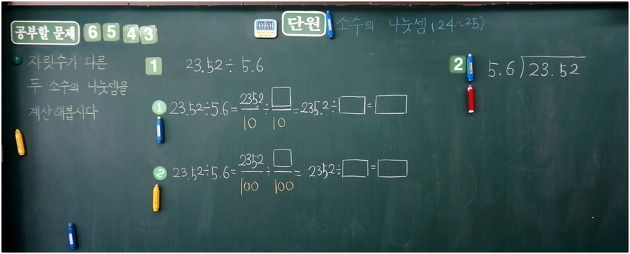 공부할 문제 6 5 4 3
단원 소수의 나눗셈 (24~25)
자릿수가 다른
두 소수의 나눗셈을
계산해봅시다
1 23.52 ÷ 5.6
① 23.52÷5.6 = 235.2/10 ÷ □/10 = 235.2 ÷ □ = □
② 23.52÷5.6 = 2352/100 ÷ □/100 = 2352 ÷ □ = □
2 5.6)23.52